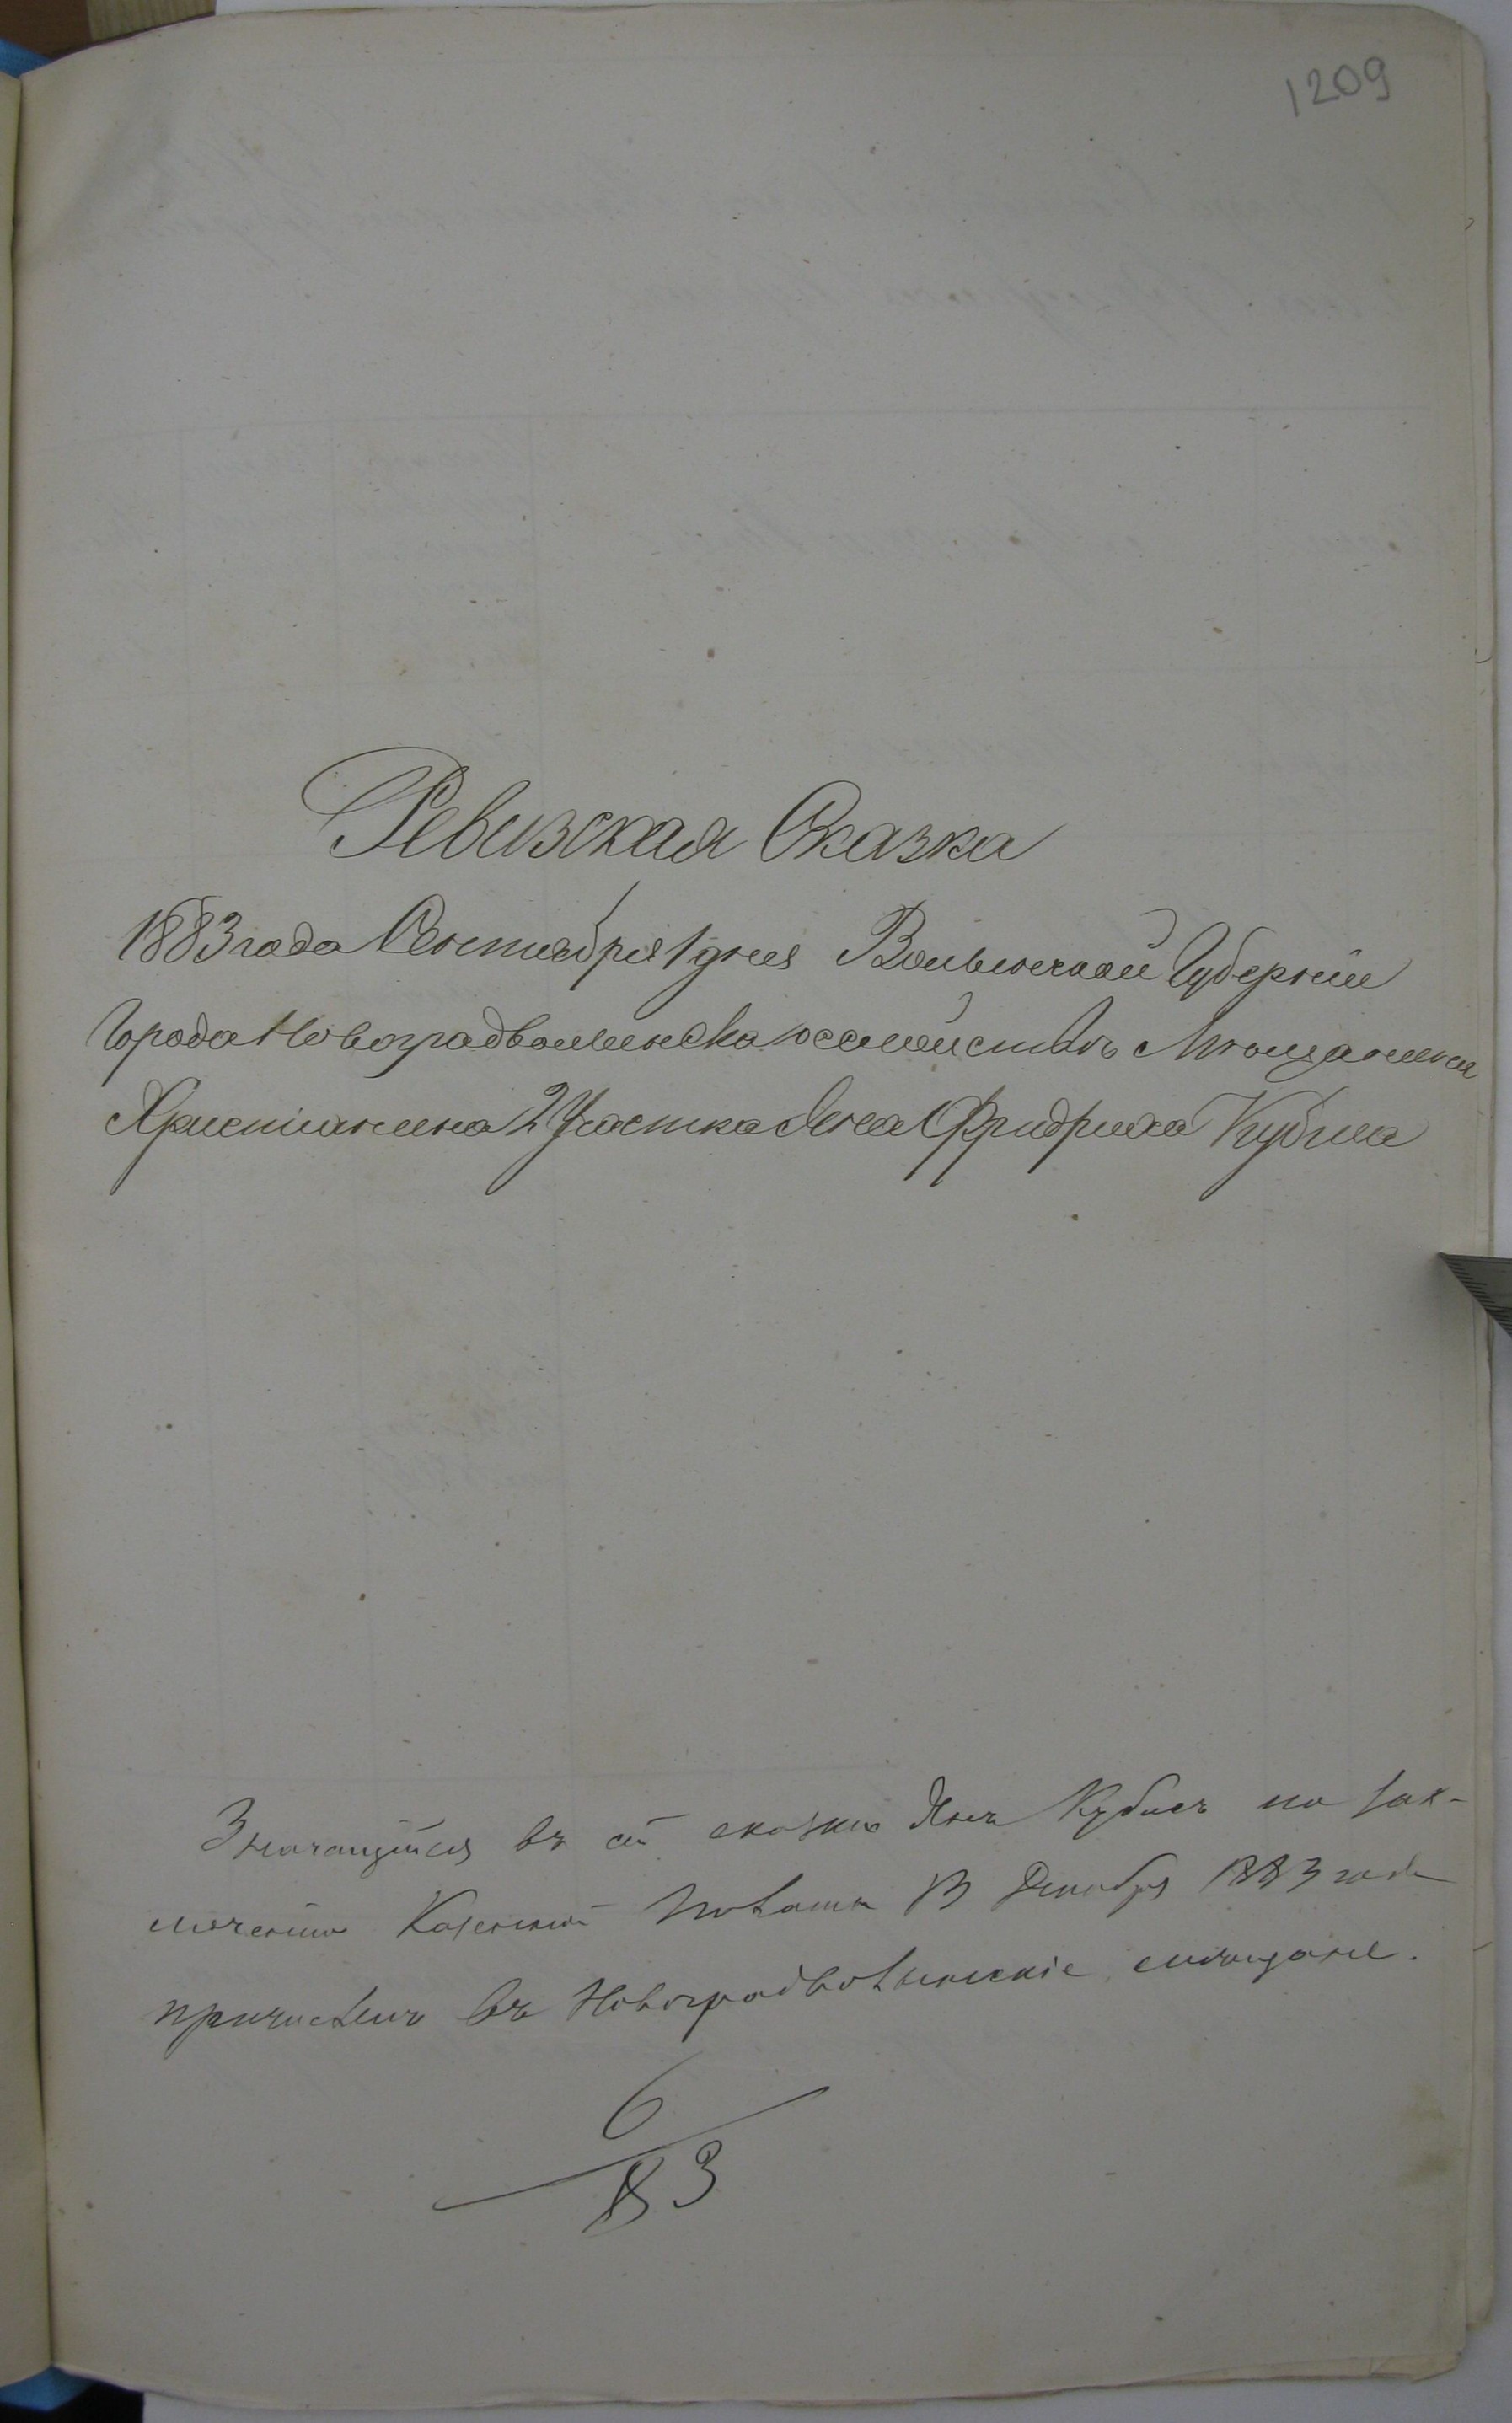 1209
Ревизская Сказка
1883 года Сентября 1 дня Волынской Губернии
Города Новоградволынска о семействѣ Мѣщанина
Христианина 2 Участка Яна Фридриха Кубиса
Значащійся въ сей сказкѣ Янъ Кубисъ по зак-
люченію Казенной Палаты 13 Декабря 1883 года
причисленъ въ Новоградволынскіе мѣщане.
6
83